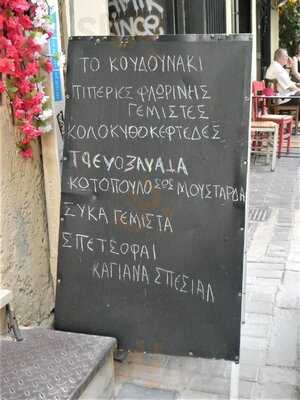 ΤΟ ΚΟΥΔΟΥΝΑΚΙ
ΠΙΠΕΡΙΕΣ ΦΛΩΡΙΝΗΣ
ΓΕΜΙΣΤΕΣ
ΚΟΛΟΚΥΘΟΚΕΦΤΕΔΕΣ
ΚΟΤΟΠΟΥΛΟ ΣΟΣ ΜΟΥΣΤΑΡΔΑ
ΣΥΚΑ ΓΕΜΙΣΤΑ
ΣΠΕΤΣΟΦΑΙ
ΚΑΓΙΑΝΑ ΣΠΕΣΙΑΛ